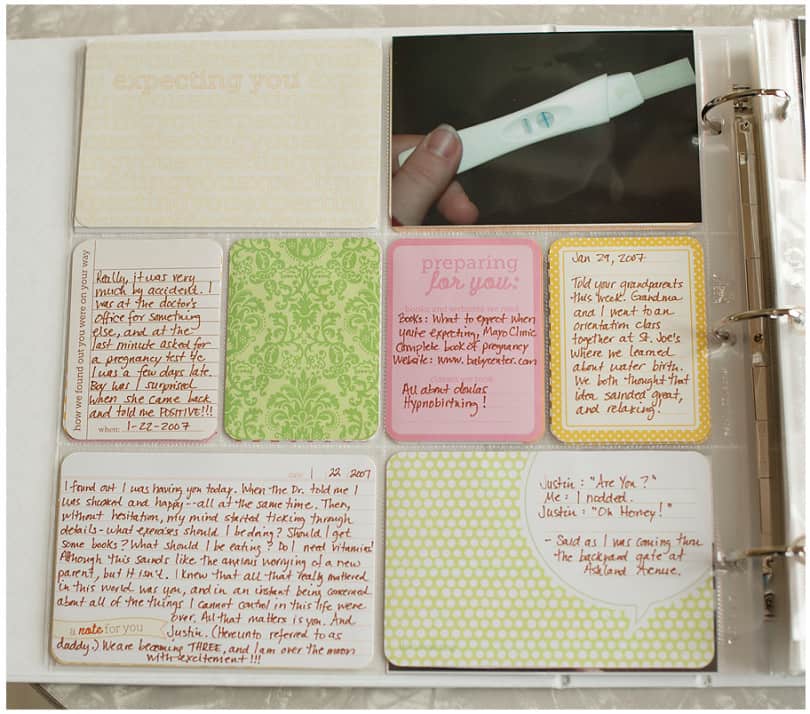 expecting you
how we found out you were on your way
Really, it was very
much by accident. I
was at the doctor's
office for something
else, and at the
last minute asked for
a pregnancy test b/c
I was a few days late.
Boy was I surprised
when she came back
and told me POSITIVE!!!
when: 1-22-2007
preparing
for you:
Books: What to Expect when
you're expecting, Mayo Clinic
Complete book of pregnancy
Website: www.babycenter.com
All about doulas
Hypnobirthing!
Jan 29, 2007
Told your grandparents
this week. Grandma
and I went to an
orientation class
together at St. Joe's
where we learned
about water birth.
We both thought that
idea sounded great,
and relaxing!
date 1 22 2007
I found out I was having you today. When the Dr. told me I
was shocked and happy--all at the same time. Then,
without hesitation, my mind started ticking through
details - what exercises should I be doing? Should I get
some books? What should I be eating? Do I need vitamins?
Although this sounds like the anxious worrying of a new
parent, but it isn't. I knew that all that really mattered
in this world was you, and in an instant being concerned
about all of the things I cannot control in this life were
over. All that matters is you. And
a note for you
Justin. (Hereunto referred to as
daddy.) We are becoming THREE, and I am over the moon
with excitement!!!
Justin: "Are You?"
Me: I nodded.
Justin: "Oh Honey!"
- Said as I was coming thru
the backyard gate at
Ashland Avenue.